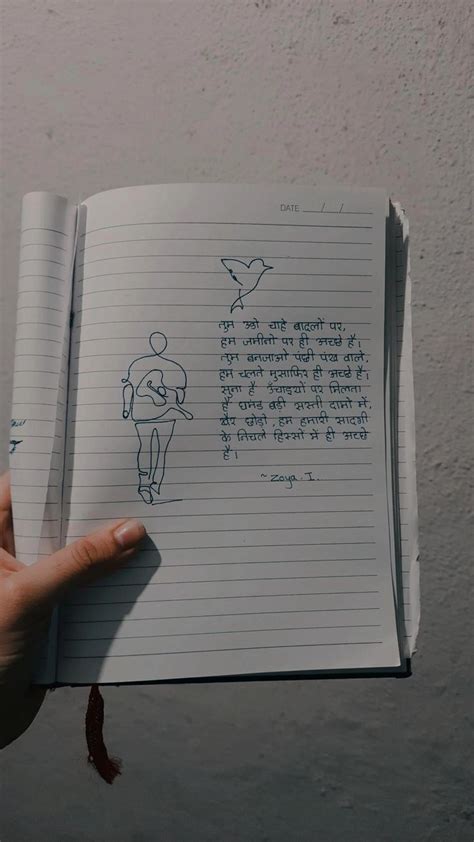 DATE __/__/__
तुम उठो चाहे बादलों पर,
हम जमीनो पर ही अच्छे है।
तुम बनजाओ पंछी पंख वाले,
हम चलते मुसाफिर ही अच्छे है।
सुना है ऊंचाइयों पर मिलता
है घमंड बड़ी सस्ती दामो में,
खैर छोड़ो, हम हमारी सादगी
के निचले हिस्सों में ही अच्छे
है।
~ Zoya. I.